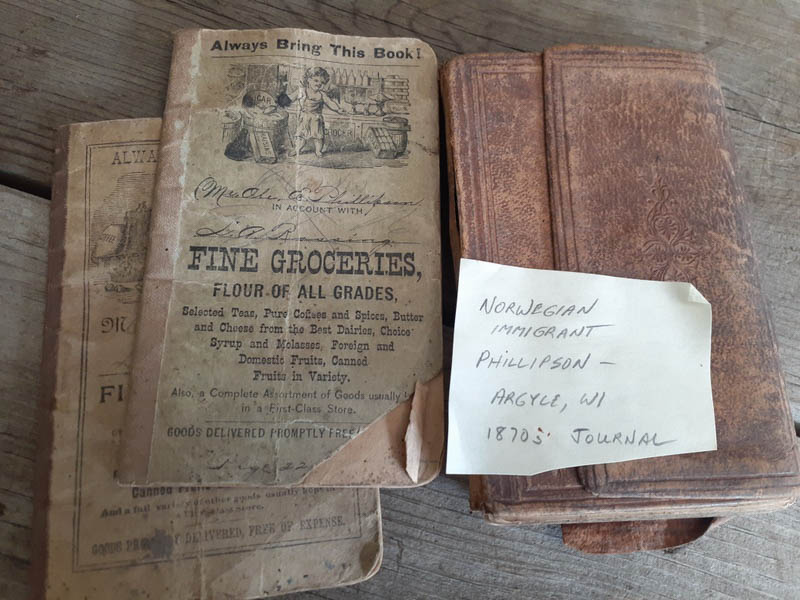 Always Bring This Book!
GROCER
Mr. Ole. O. Phillipson
IN ACCOUNT WITH,
FINE GROCERIES,
FLOUR OF ALL GRADES,
Selected Teas, Pure Coffees and Spices, Butter
and Cheese from the Best Dairies, Choice
Syrup and Molasses, Foreign and
Domestic Fruits, Canned
Fruits in Variety.
Also, a Complete Assortment of Goods usually
in a First-Class Store.
GOODS DELIVERED PROMPTLY FREE
ALWA
M
FI
Canned
And a full variety of other goods usually kept in a
First-class Store.
GOODS PROMPTLY DELIVERED, FREE OF EXPENSE.
NORWEGIAN
IMMIGRANT
PHILLIPSON -
ARGYLE, WI
1870s' JOURNAL